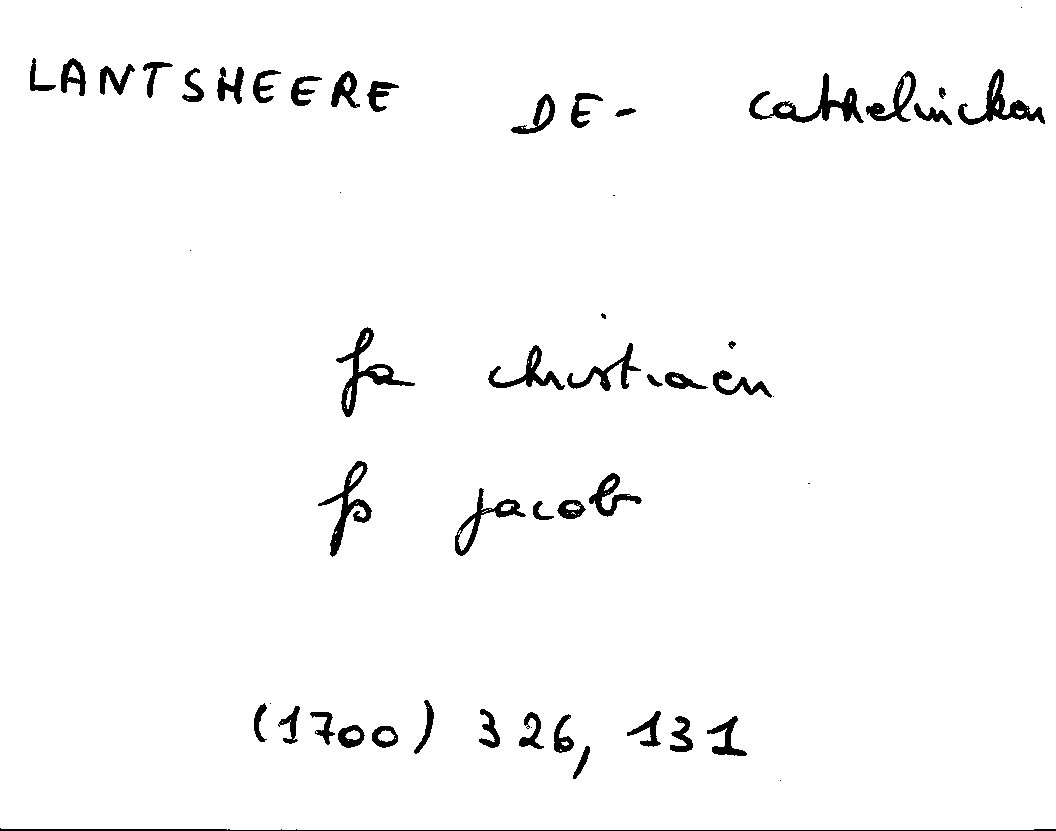 LANTSHEERE DE- Cathelinken
fa christiaen
fs jacob
(1700) 326, 131